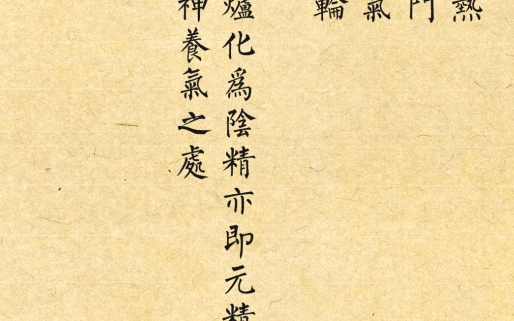 熱
門
氣
輪
爐化爲陰精亦即元精
神養氣之處